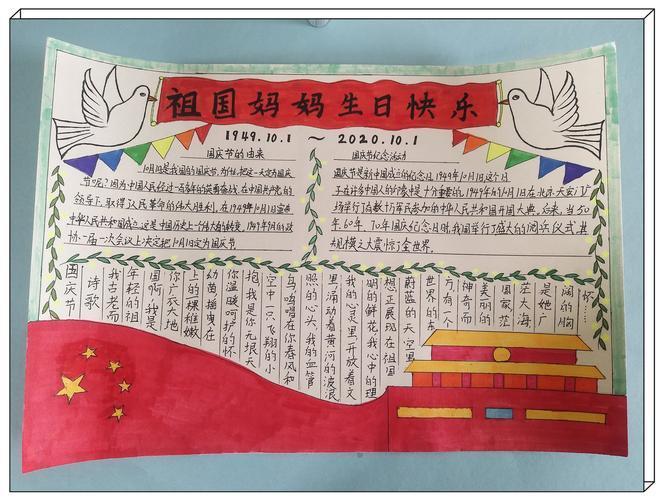 祖国妈妈生日快乐
1949.10.1 ～ 2020.10.1
国庆节的由来
10月1日是我国的国庆节,为什么把这一天定为国庆
节呢?因为中国人民经过一百多年的英勇奋战,在中国共产党的
领导下,取得了人民革命的伟大胜利,在1949年10月1日宣告
中华人民共和国成立,这是中国历史上一个伟大的转变,1949年9月的政
协一届一次会议上决定把10月1日定为国庆节
国庆节纪念活动
国庆节是新中国成立的纪念日,1949年10月1日这个日
子在许多中国人的印象是十分重要的,1949年的10月1日在北京天安门广
场举行了有数十万军民参加的中华人民共和国开国大典,后来,当50
年、60年、70年国庆纪念日时我国举行了盛大的阅兵仪式,其
规模之大震惊了全世界.
国庆节
诗歌
我古老而
年轻的祖
国啊,我是
你广袤大地
上的稞稚嫩
幼苗摇曳在
你温暖呵护的怀
抱,我是你无垠天
空中一只飞翔的小
鸟鸣唱在你春风和
照的心头,我的血管
里涌动着黄河的浪
我的心灵里开放着文
明的鲜花我心中的理
想正展现在祖国
蔚蓝的天空里
世界的东
方有一个
神奇而
美丽的
国家茫
茫大海
是她广
阔的胸
怀…